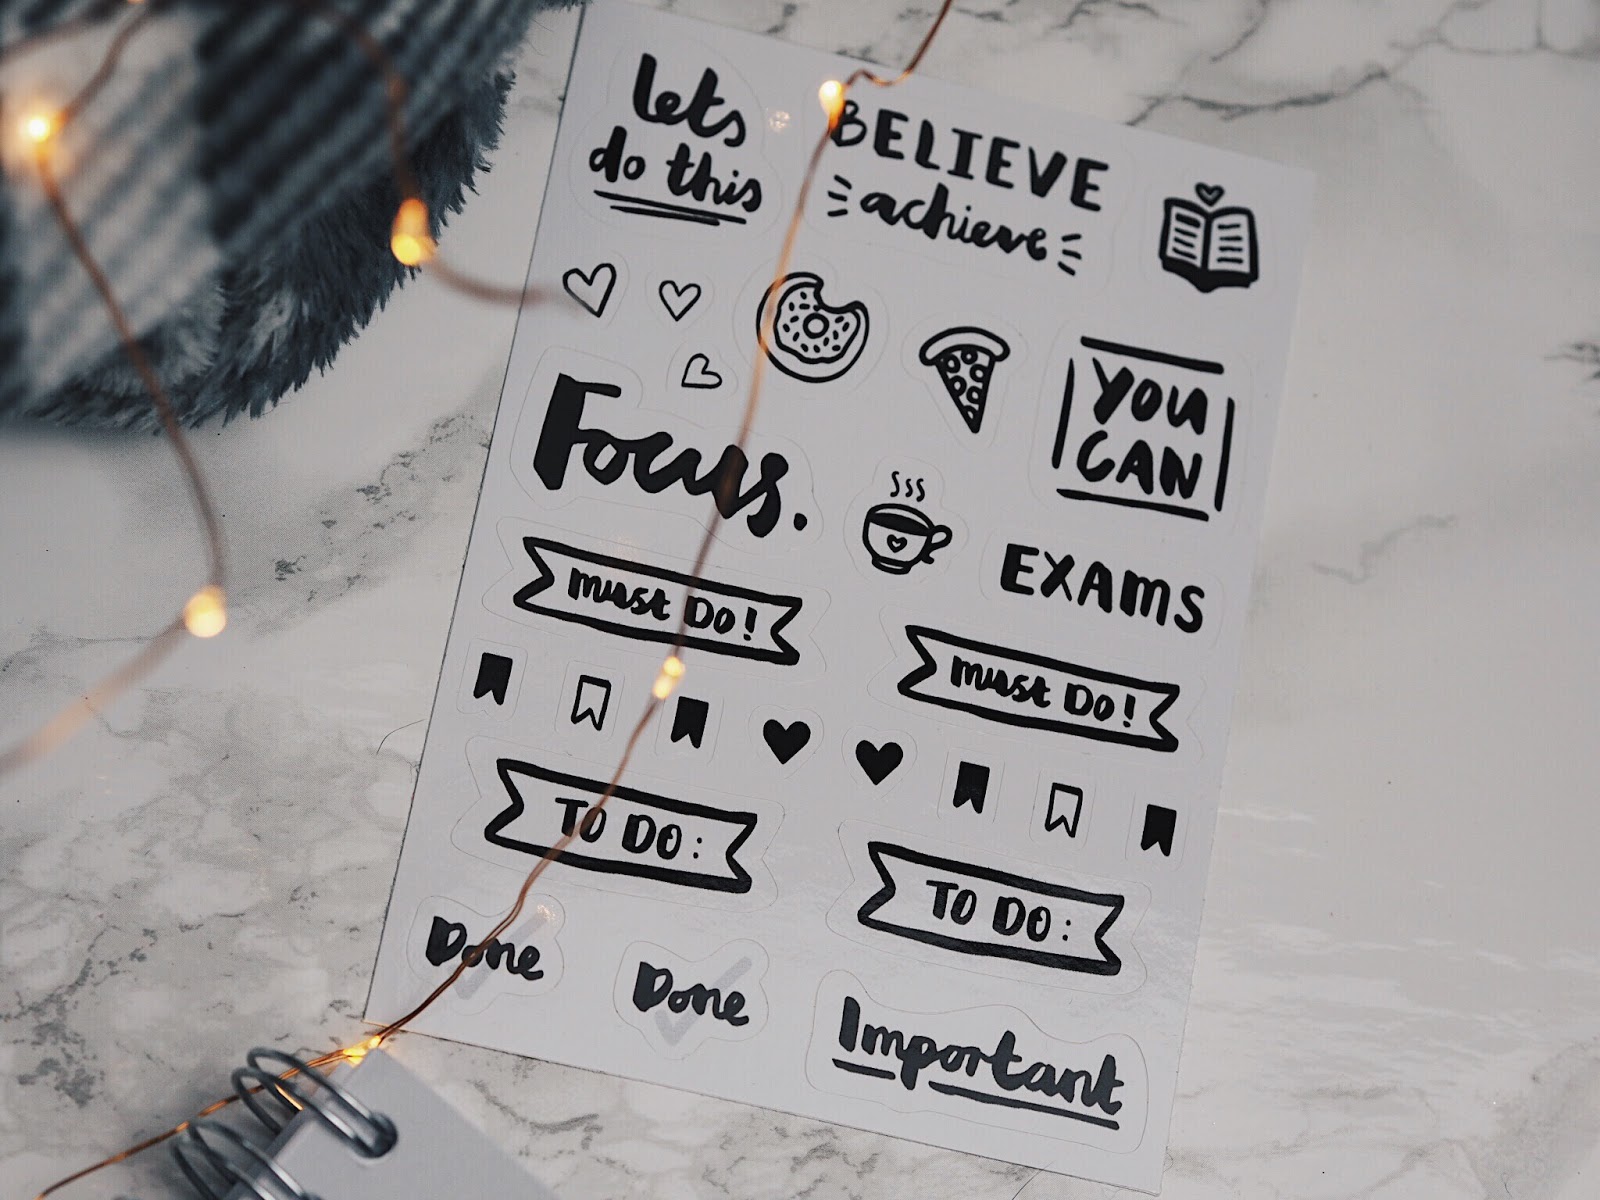 lets
do this
BELIEVE
achieve
YOU
CAN
Focus.
EXAMS
MUST DO!
MUST DO!
TO DO:
TO DO:
Done
Done
Important